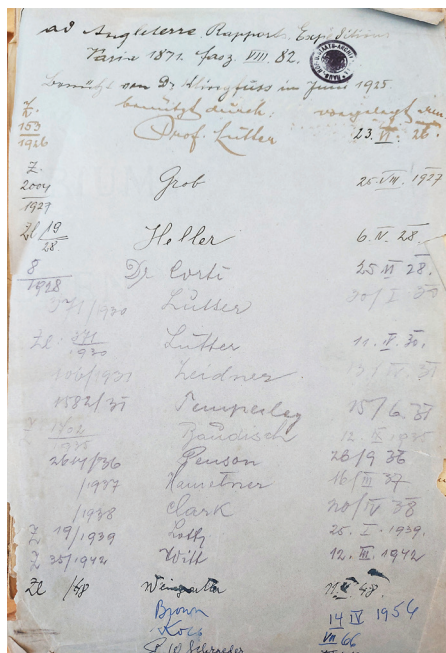 ad Angleterre Rapports, Expéditions
Varia 1871. fasz. VIII. 82.
benützt von Dr. Klingfuss im Juni 1925.
Z. benützt durch: vorgelegt am
153/1926 Prof. Lutter 23. VI. 26
Z. 2004/1927 Grob 25. VIII. 1927
Zl 19/28. Heller 6. IV. 28.
8/1928 Dr. Corti 25 VI 28.
371/1930 Lutter 30/I 30
Zl. 371/1930 Lutter 11. IV. 30.
106/1931 Zeidner. 13/IV. 31
1582/31 Temperley 15/6. 31
1202/1935 Baudisch 12. IX 1935
2614/36 Penson 26/9 36
/1937 16/III 37
/1938 Clark 20/IV 38
Z 19/1939 Lotz 25. I. 1939.
Z 35/1942 Witt 12. III. 1942
Zl /48 48.
Brown 14 IV 1954
VII 66
Schroeder